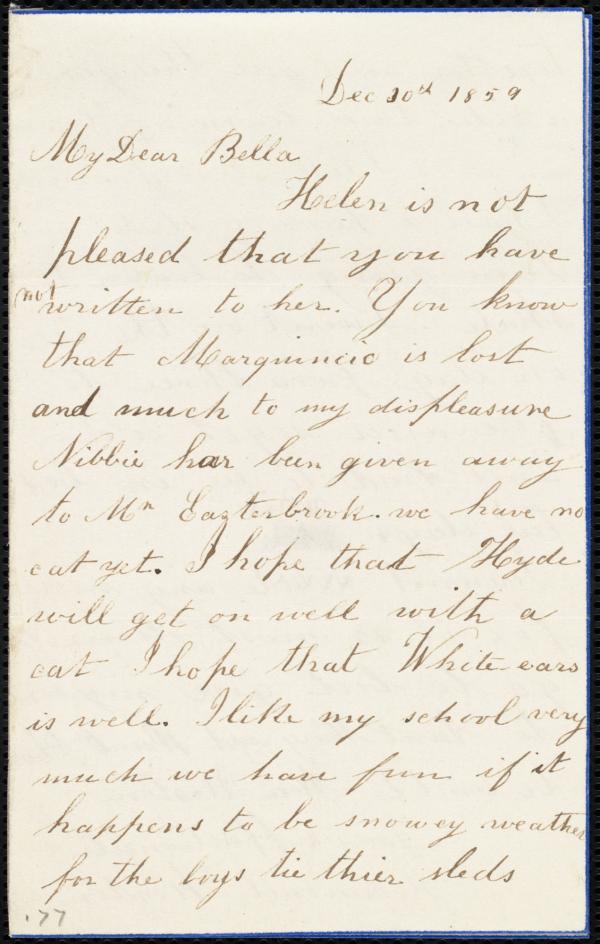 Dec 10th 1859
My Dear Bella
Helen is not
pleased that you have
not
written to her. You know
that Marquincic is lost
and much to my displeasure
Nibbie has been given away
to Mr Eazterbrook. we have no
cat yet. I hope that Hyde
will get on well with a
cat I hope that White-ears
is well. I like my school very
much we have fun if it
happens to be snowey weather
for the boys tie thier sleds
.77